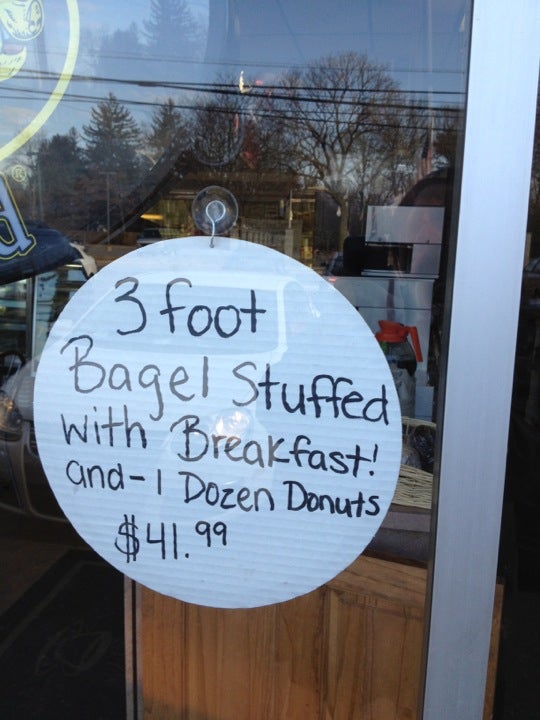 3 foot
Bagel Stuffed
with Breakfast!
and - 1 Dozen Donuts
$41.99